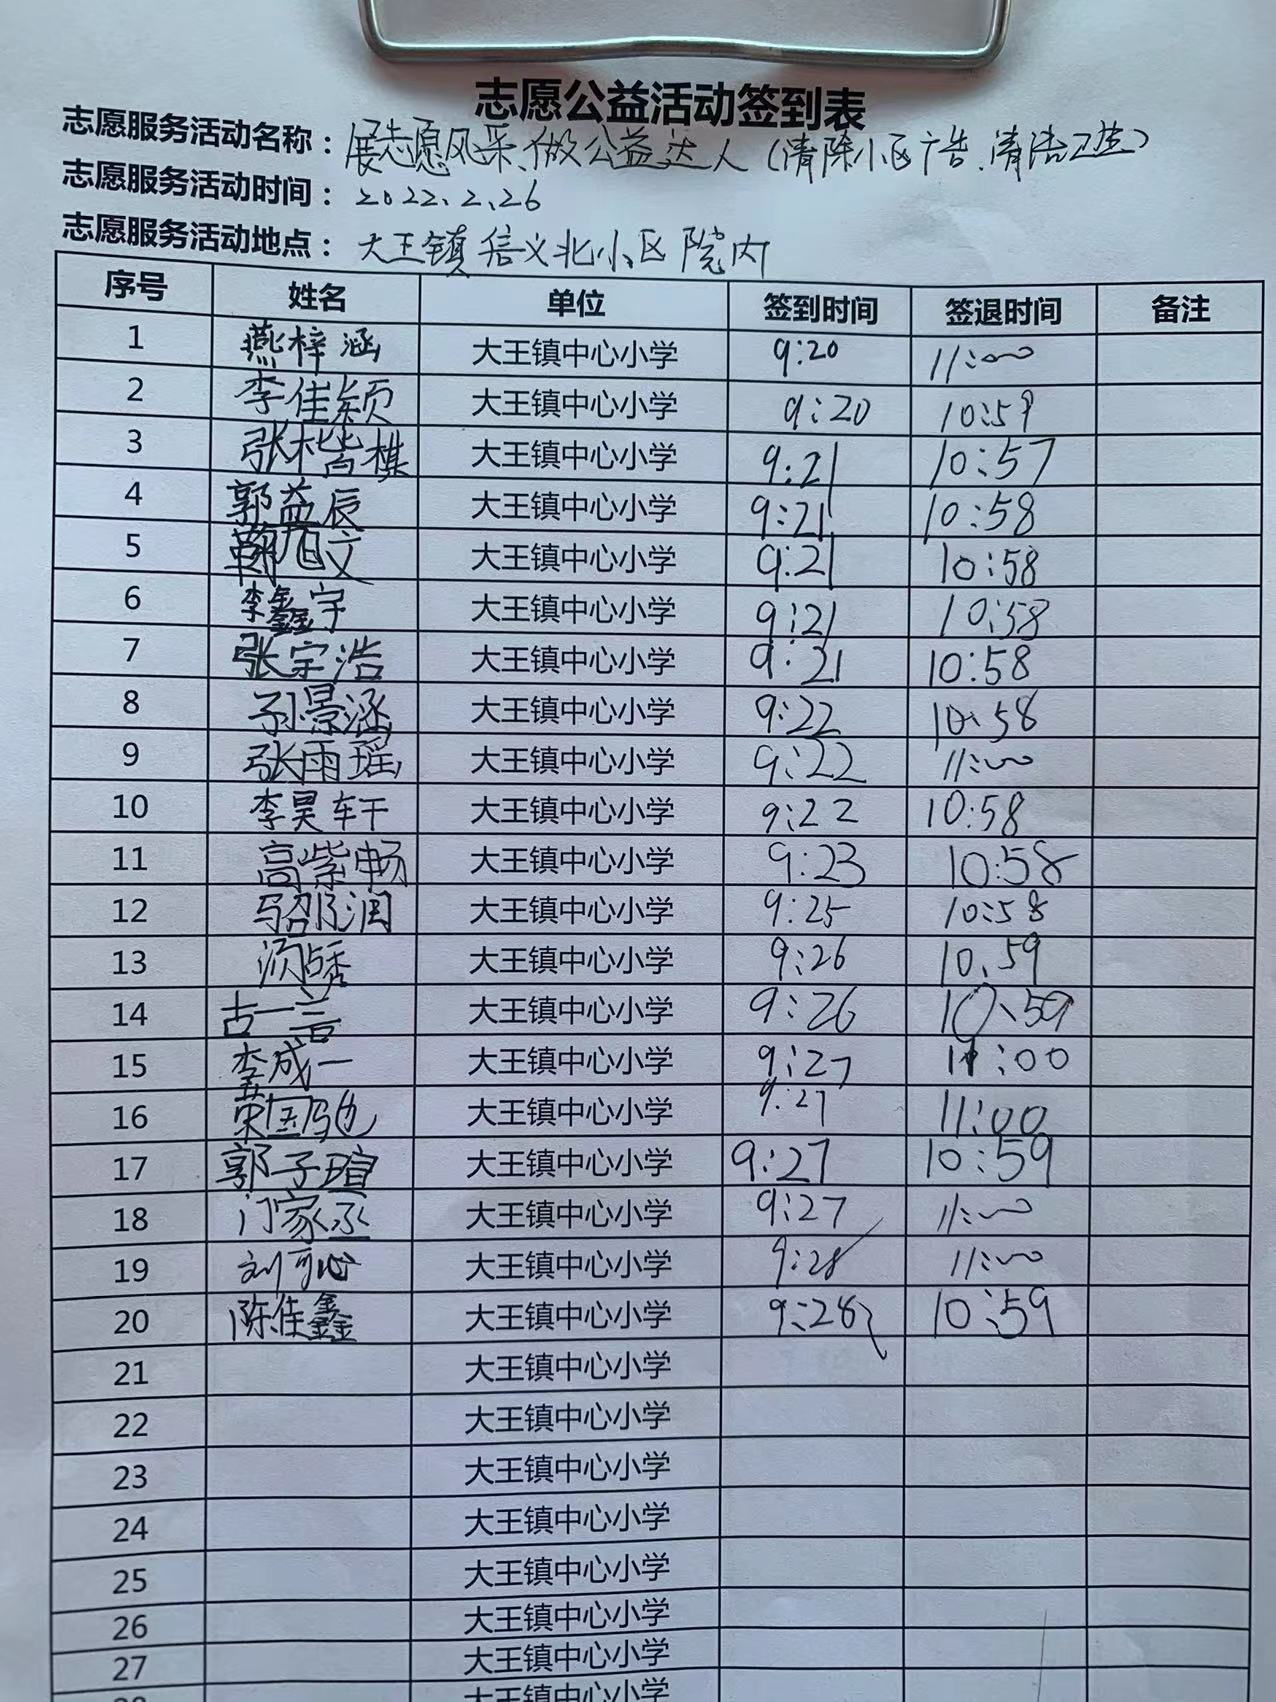 志愿公益活动签到表
志愿服务活动名称：展志愿风采、做公益达人（清除小区广告、清洁卫生）
志愿服务活动时间：2022.2.26
志愿服务活动地点：大王镇信义北小区院内
序号 姓名 单位 签到时间 签退时间 备注
1 燕梓涵 大王镇中心小学 9:20 11:00
2 李佳颖 大王镇中心小学 9:20 10:59
3 张楷樵 大王镇中心小学 9:21 10:57
4 郭益辰 大王镇中心小学 9:21 10:58
5 鞠旭文 大王镇中心小学 9:21 10:58
6 李鑫宇 大王镇中心小学 9:21 10:58
7 张宗浩 大王镇中心小学 9:21 10:58
8 孙景涵 大王镇中心小学 9:22 10:58
9 张雨瑶 大王镇中心小学 9:22 11:00
10 李昊轩 大王镇中心小学 9:22 10:58
11 高紫畅 大王镇中心小学 9:23 10:58
12 大王镇中心小学 9:25 10:58
13 大王镇中心小学 9:26 10.59
14 古一言 大王镇中心小学 9:26 10、59
15 李成一 大王镇中心小学 9:27 11:00
16 荣国驰 大王镇中心小学 9:27 11:00
17 郭子瑄 大王镇中心小学 9:27 10:59
18 门家丞 大王镇中心小学 9:27 11:00
19 刘可心 大王镇中心小学 9:28 11:00
20 陈佳鑫 大王镇中心小学 9:28 10:59
21 大王镇中心小学
22 大王镇中心小学
23 大王镇中心小学
24 大王镇中心小学
25 大王镇中心小学
26 大王镇中心小学
27 大王镇中心小学
28 大王镇中心小学